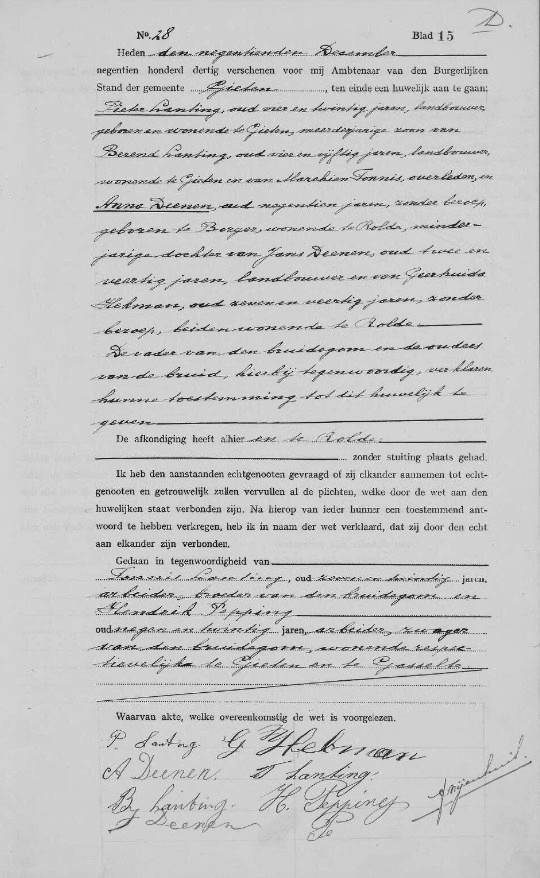 D.
No. 28 Blad 15
Heden den negentienden December
negentien honderd dertig verschenen voor mij Ambtenaar van den Burgerlijken
Stand der gemeente Gieten, ten einde een huwelijk aan te gaan:
Pieter Lanting, oud vier en twintig jaren, landbouwer,
geboren en wonende te Gieten, meerderjarige zoon van
Berend Lanting, oud vier en vijftig jaren, landbouwer,
wonende te Gieten en van Marchien Tonnis, overleden, en
Anna Deenen, oud negentien jaren, zonder beroep,
geboren te Borger, wonende te Rolde, minder-
jarige dochter van Jans Deenen, oud twee en
veertig jaren, landbouwer en van Geerhuida
Hekman, oud zeven en veertig jaren, zonder
beroep, beiden wonende te Rolde
De vader van den bruidegom en de ouders
van de bruid, hierbij tegenwoordig, verklaren
hunne toestemming tot dit huwelijk te
geven
De afkondiging heeft alhier en te Rolde
zonder stuiting plaats gehad.
Ik heb den aanstaanden echtgenooten gevraagd of zij elkander aannemen tot echt-
genooten en getrouwelijk zullen vervullen al de plichten, welke door de wet aan den
huwelijken staat verbonden zijn. Na hierop van ieder hunner een toestemmend ant-
woord te hebben verkregen, heb ik in naam der wet verklaard, dat zij door den echt
aan elkander zijn verbonden.
Gedaan in tegenwoordigheid van
Lanting, oud zeven en twintig jaren,
arbeider, broeder van den bruidegom en
Hendrik Pepping
oud negen en twintig jaren, arbeider, zwager
van den bruidegom, wonende respec-
tievelijk te Gieten en te Gasselte.
Waarvan akte, welke overeenkomstig de wet is voorgelezen.
P. Lanting G Hekman
A Deenen. T Lanting.
B Lanting. H. Pepping
J Deenen